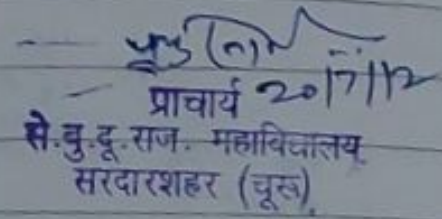 20/7/12
प्राचार्य
से.बु.दू.राज. महाविद्यालय
सरदारशहर (चूरू)